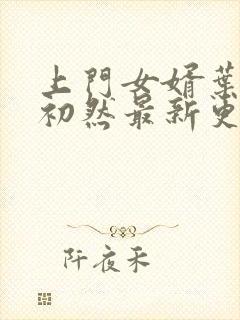 上門女婿葉
初然最新更
阡夜禾